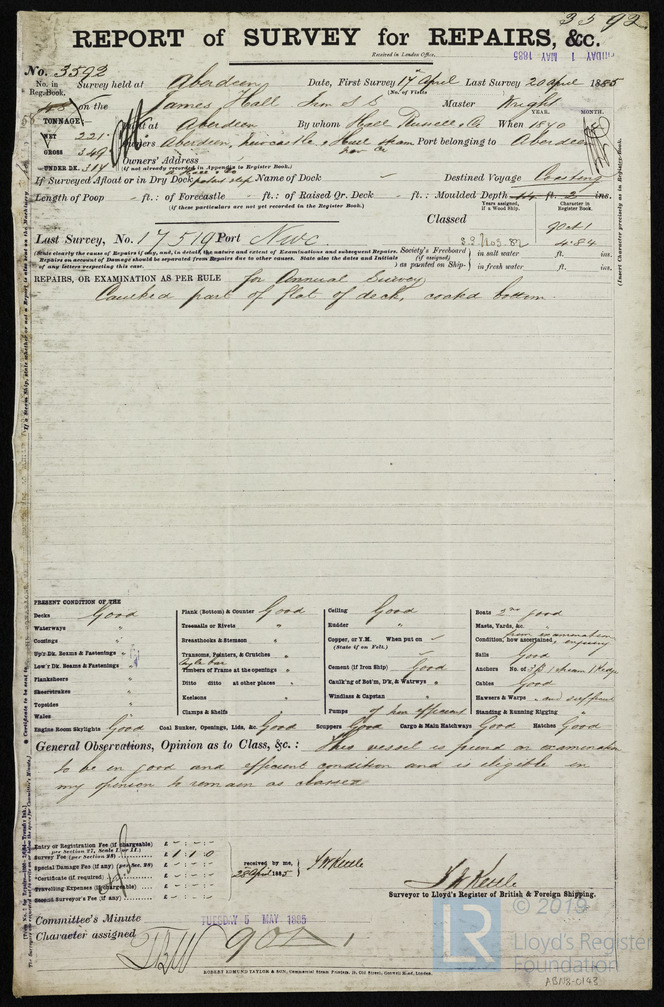 3592
REPORT of SURVEY for REPAIRS, &c.
Received in London Office,
FRIDAY 1 MAY 1885
No. 3592
No. in Reg. Book.
Survey held at Aberdeen Date, First Survey 17 April Last Survey 20 April 1885
(No. of Visits
on the James Hall Iron S S Master Wright
TONNAGE
NET 221
GROSS 349
UNDER DK. 314
Built at Aberdeen By whom Hall Russell & Co When 1870
YEAR. MONTH.
Owners Aberdeen, Newcastle & Hull Steam Nav Co Port belonging to Aberdeen
Owners' Address
(if not already recorded in Appendix to Register Book.)
If Surveyed Afloat or in Dry Dock patent slip Name of Dock Destined Voyage Coasting
Length of Poop - ft.: of Forecastle - ft.: of Raised Qr. Deck - ft.: Moulded Depth ft. ins.
(if these particulars are not yet recorded in the Register Book.)
Years assigned, if a Wood Ship.
Character in Register Book.
Classed
Last Survey, No. 17519 Port Nwc
4.84
(State clearly the cause of Repairs if any, and, in detail, the nature and extent of Examinations and subsequent Repairs.
Repairs on account of Damage should be separated from Repairs due to other causes. State also the dates and Initials
of any letters respecting this case.
Society's Freeboard (if assigned) as painted on Ship-
in salt water ft. ins.
in fresh water ft. ins.
REPAIRS, OR EXAMINATION AS PER RULE for Annual Survey
Caulked part of flat of deck, coated bottom.
PRESENT CONDITION OF THE
Decks Good
Waterways "
Comings "
Up'r. Dk. Beams & Fastenings "
Low'r Dk. Beams & Fastenings "
Planksheers
Sheerstrakes "
Topsides "
Wales "
Engine Room Skylights Good
Plank (Bottom) & Counter Good
Treenails or Rivets "
Breasthooks & Stemson "
Transoms, Pointers, & Crutches "
Timbers of Frame at the openings "
Ditto ditto at other places "
Keelsons "
Clamps & Shelfs "
Coal Bunker, Openings, Lids, &c. Good
Ceiling Good
Rudder "
Copper, or Y.M. When put on
(State if on Felt.)
Cement (if Iron Ship) Good
Caulk'ng of Bot'm, D'k, & Watrwys "
Windlass & Capstan "
Pumps efficient
Scuppers Good
Cargo & Main Hatchways Good
Boats good
Masts, Yards, &c. "
Condition, how ascertained from examination
Sails Good
Anchors No. of 3 B 1 Stream 1 Kedge
Cables Good
Hawsers & Warps and sufficient
Standing & Running Rigging "
Hatches Good
General Observations, Opinion as to Class, &c.: This vessel is found on examination
to be in good and efficient condition and is eligible in
my opinion to remain as classed
Entry or Registration Fee (if chargeable)
per Section 27, Scale I. or II.) £ - : - : -
Survey Fee (per Section 28) £ 1 : 1 : 0
Special Damage Fee (if any) (per Sec. 28) £ - : - : -
Certificate (if required) £ - : - : -
Travelling Expenses (if chargeable) £ - : - : -
Second Surveyor's Fee (if any) £ - : - : -
received by me,
28 April 1885
J W Kettle
J W Kettle
Surveyor to Lloyd's Register of British & Foreign Shipping.
Committee's Minute TUESDAY 5 MAY 1885
Character assigned 90 A 1
ROBERT EDMUND TAYLOR & SON, Commercial Steam Printers, 19, Old Street, Goswell Road, London.
LR
© 2019
Lloyd's Register
Foundation
ABN8-0143